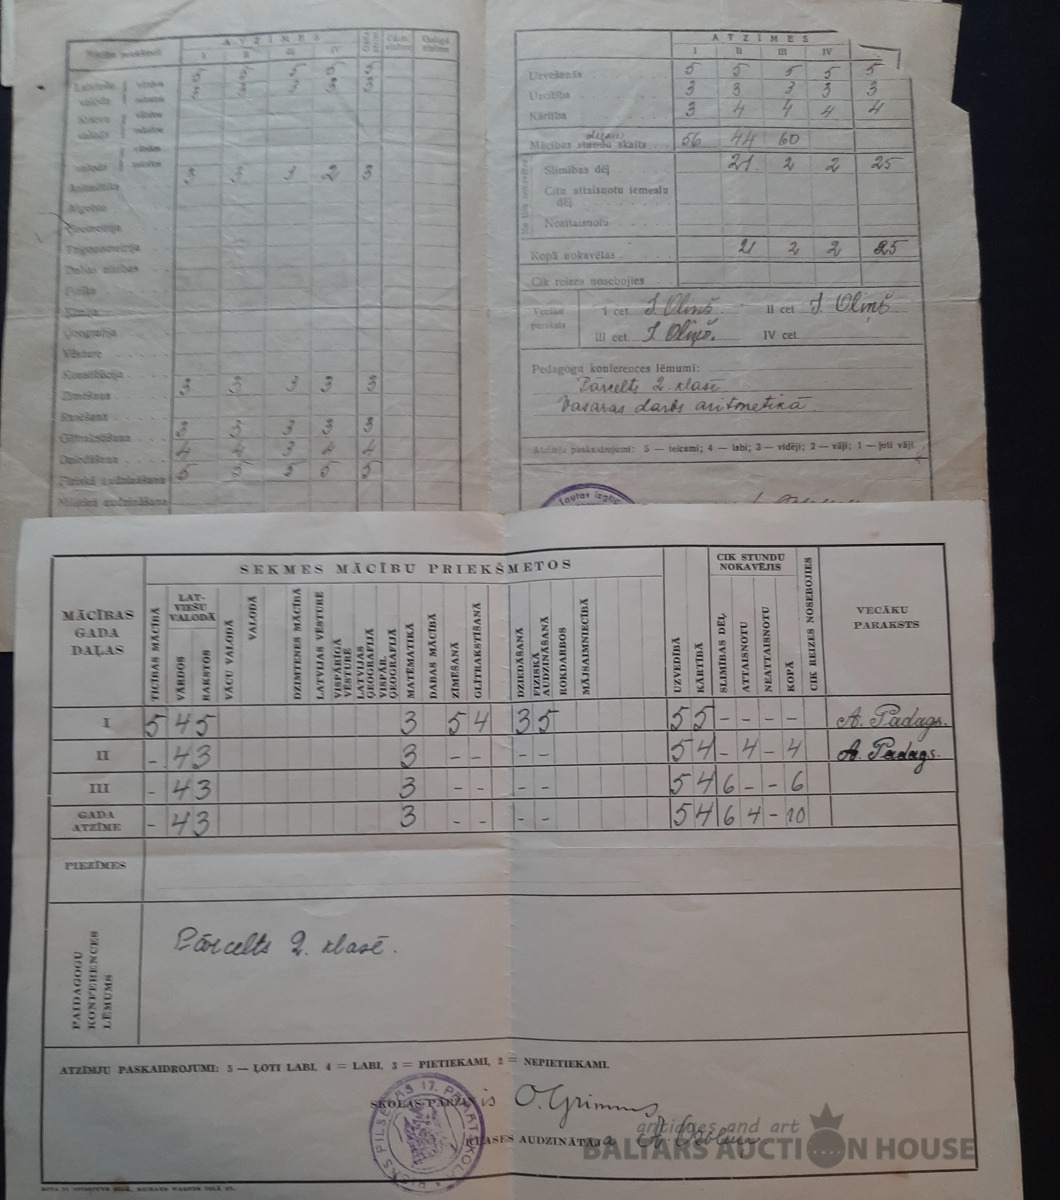 ATZĪMES
I II III IV
Latviešu
valoda
Krievu
valoda
valoda
Aritmētika 3 3 3 2 3
Algebra
Ģeometrija
Trigonometrija
Dabas zinības
Fizika
Ķīmija
Ģeografija
Vēsture
Konstitūcija
Zīmēšana 3 3 3 3 3
Rasēšana
Glītrakstīšana 3 3 3 3 3
Dziedāšana 4 4 3 4 4
Fiziskā audzināšana 5 5 5 5 5
ATZĪMES
I II III IV
Uzvešanās 5 5 5 5 5
Uzcītība 3 3 3 3 3
Kārtība 3 4 4 4 4
Mācības stundu skaits 56 44 60
Slimības dēļ 21 2 2 25
Citu attaisnotu iemeslu
dēļ
Neattaisnotu
Kopā nokavētas 21 2 2 25
Cik reizes nosebojies
Vecāku
paraksts
I cet. J. Oliņš II cet. J. Oliņš
III cet. J. Oliņš. IV cet.
Pedagogu konferences lēmumi:
Pārcelts 2. klasē
Vasaras darbs aritmetikā.
Atzīmju paskaidrojumi: 5 — teicami; 4 — labi; 3 — vidēji; 2 — vāji; 1 — ļoti vāji
MĀCĪBAS
GADA
DAĻAS
SEKMES MĀCĪBU PRIEKŠMETOS
TICĪBAS MĀCĪBĀ
LAT-
VIEŠU
VALODĀ
VĀRDOS
RAKSTOS
VĀCU VALODĀ
VALODĀ
DZIMTENES MĀCĪBĀ
LATVIJAS VĒSTURĒ
VISPĀRĪGĀ
VĒSTURĒ
LATVIJAS
ĢEOGRAFIJĀ
VISPĀR.
ĢEOGRAFIJĀ
MATĒMATIKĀ
DABAS MĀCĪBĀ
ZĪMĒŠANĀ
GLĪTRAKSTĪŠANĀ
DZIEDĀŠANĀ
FIZISKĀ
AUDZINĀŠANĀ
ROKDARBOS
MĀJSAIMNIECĪBĀ
UZVEDĪBĀ
KĀRTĪBĀ
CIK STUNDU
NOKAVĒJIS
SLIMĪBAS DĒĻ
ATTAISNOTU
NEATTAISNOTU
KOPĀ
CIK REIZES NOSEBOJIES
VECĀKU
PARAKSTS
I 5 4 5 3 5 4 3 5 5 5 – – – – A. Padags.
II – 4 3 3 – – – – 5 4 – 4 – 4 A. Padags.
III – 4 3 3 – – – – 5 4 6 – – 6
GADA
ATZĪME – 4 3 3 – – – – 5 4 6 4 – 10
PIEZĪMES
PAIDAGOGU
KONFERENCES
LĒMUMS
Pārcelts 2. klasē.
ATZĪMJU PASKAIDROJUMI: 5 — ĻOTI LABI, 4 = LABI, 3 = PIETIEKAMI, 2 = NEPIETIEKAMI.
SKOLAS PĀRZINIS O. Grimms
KLASES AUDZINĀTĀJA
RĪGAS PILSĒTAS 17. PAMATSKOLA
antiques and art
BALTARS AUCTION HOUSE